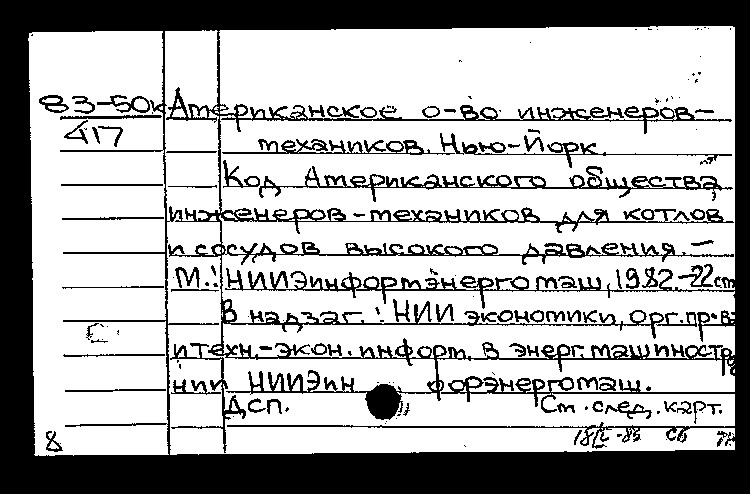 83-50к Американское о-во инженеров-
417 механиков. Нью-Йорк.
Код Американского общества
инженеров-механиков для котлов
и сосудов высокого давления.-
М.: НИИЭинформэнергомаш, 1982.-22 см
В надзаг.: НИИ экономики, орг. пр-ва
и техн.-экон. информ. в энерг. машиностр
нии НИИЭин форэнергомаш.
Дсп. См. след. карт.
8 Сб